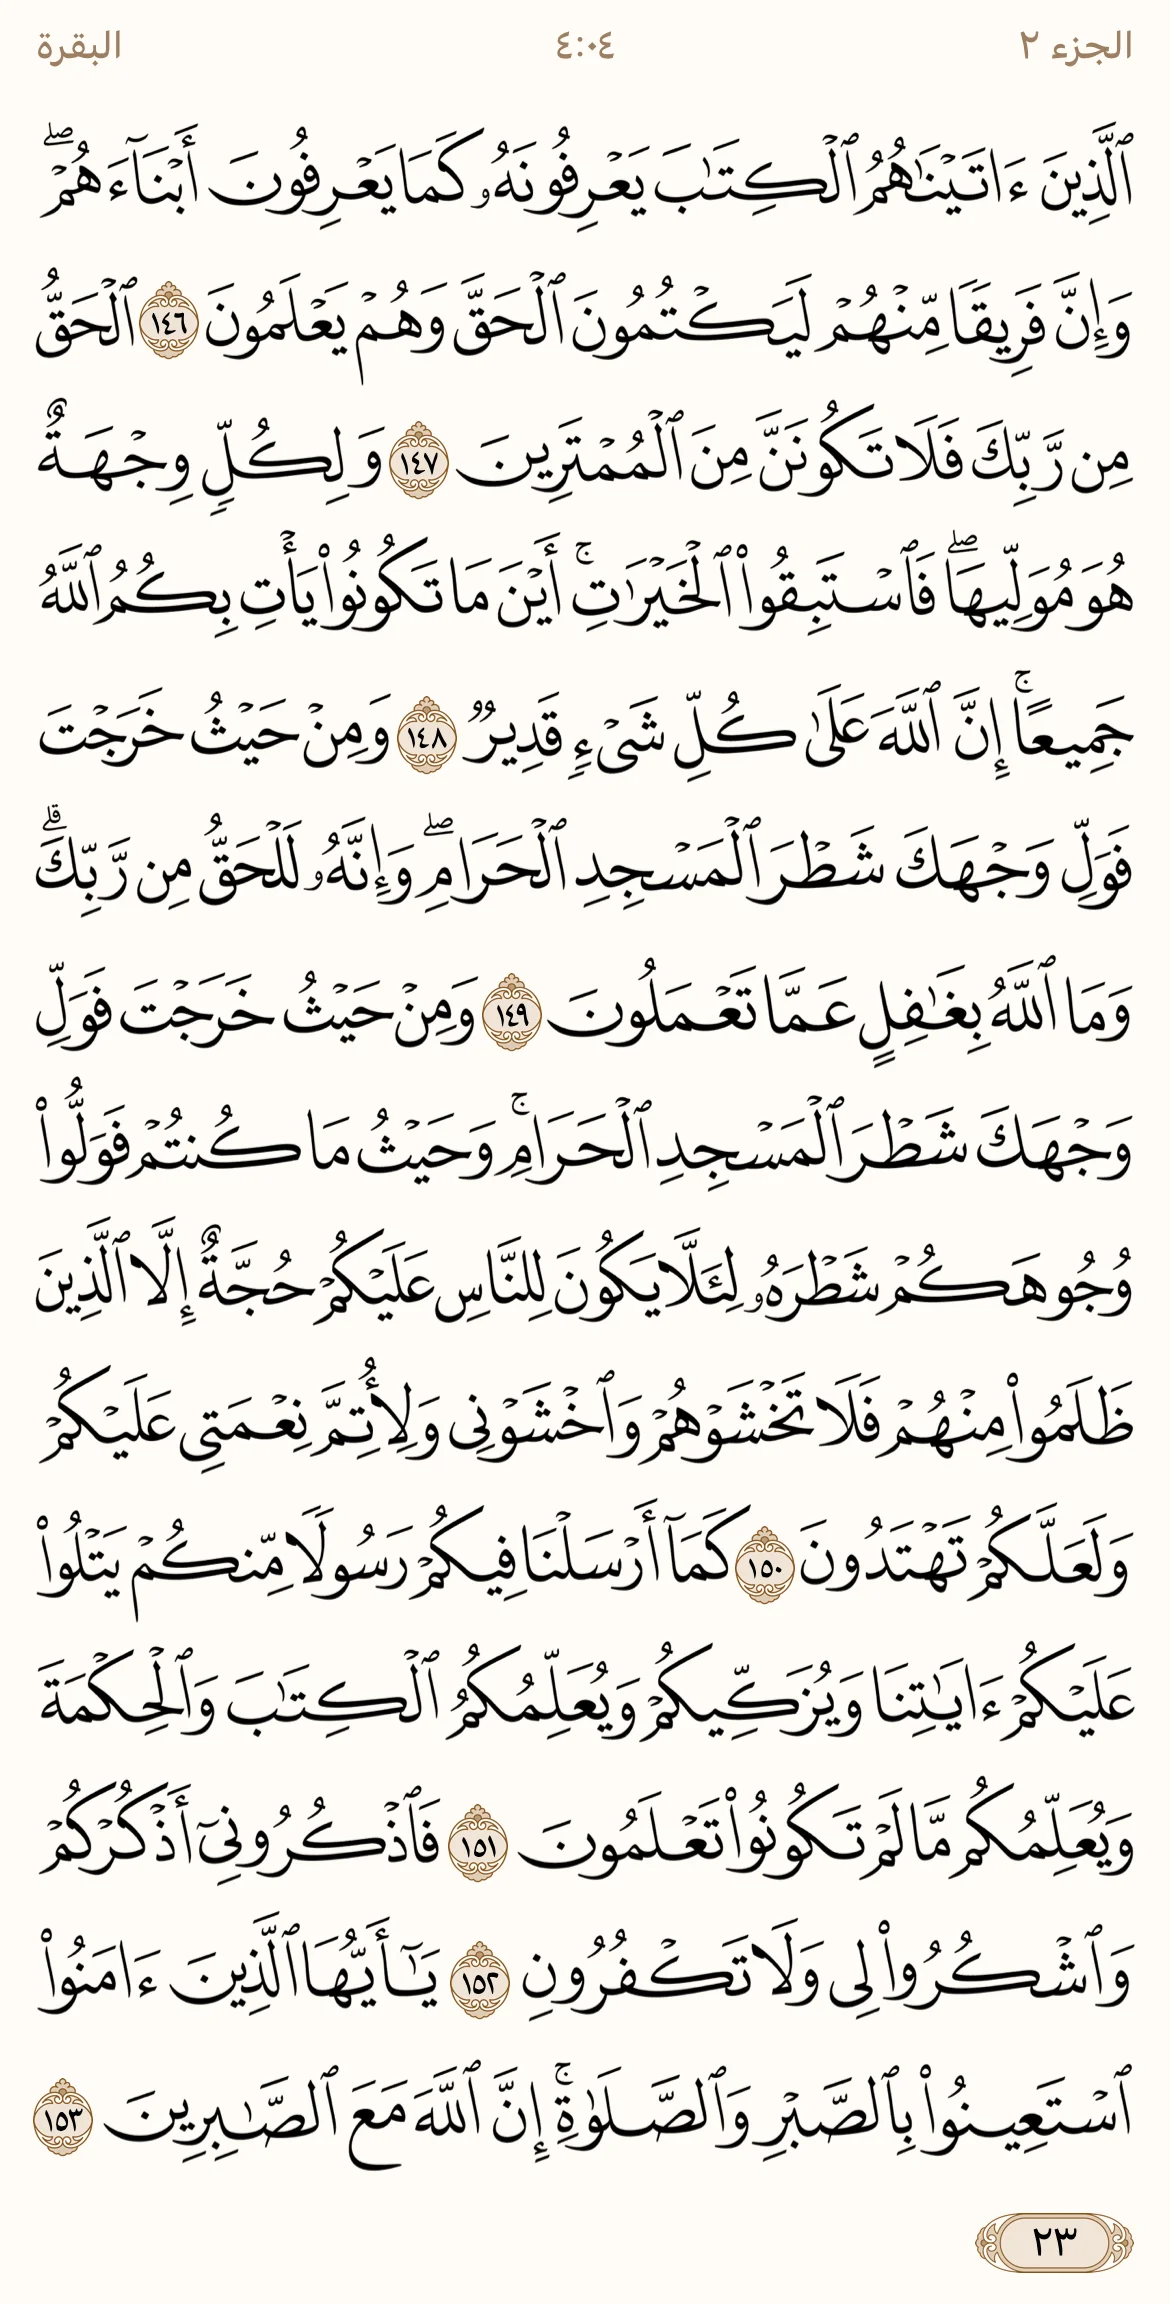 الجزء ٢
٤:٠٤
البقرة
ٱلَّذِينَ ءَاتَيْنَٰهُمُ ٱلْكِتَٰبَ يَعْرِفُونَهُۥ كَمَا يَعْرِفُونَ أَبْنَآءَهُمْۖ
وَإِنَّ فَرِيقًا مِّنْهُمْ لَيَكْتُمُونَ ٱلْحَقَّ وَهُمْ يَعْلَمُونَ ١٤٦ ٱلْحَقُّ
مِن رَّبِّكَ فَلَا تَكُونَنَّ مِنَ ٱلْمُمْتَرِينَ ١٤٧ وَلِكُلٍّ وِجْهَةٌ
هُوَ مُوَلِّيهَاۖ فَٱسْتَبِقُوا۟ ٱلْخَيْرَٰتِۚ أَيْنَ مَا تَكُونُوا۟ يَأْتِ بِكُمُ ٱللَّهُ
جَمِيعًاۚ إِنَّ ٱللَّهَ عَلَىٰ كُلِّ شَىْءٍ قَدِيرٌ ١٤٨ وَمِنْ حَيْثُ خَرَجْتَ
فَوَلِّ وَجْهَكَ شَطْرَ ٱلْمَسْجِدِ ٱلْحَرَامِۖ وَإِنَّهُۥ لَلْحَقُّ مِن رَّبِّكَۗ
وَمَا ٱللَّهُ بِغَٰفِلٍ عَمَّا تَعْمَلُونَ ١٤٩ وَمِنْ حَيْثُ خَرَجْتَ فَوَلِّ
وَجْهَكَ شَطْرَ ٱلْمَسْجِدِ ٱلْحَرَامِۚ وَحَيْثُ مَا كُنتُمْ فَوَلُّوا۟
وُجُوهَكُمْ شَطْرَهُۥ لِئَلَّا يَكُونَ لِلنَّاسِ عَلَيْكُمْ حُجَّةٌ إِلَّا ٱلَّذِينَ
ظَلَمُوا۟ مِنْهُمْ فَلَا تَخْشَوْهُمْ وَٱخْشَوْنِى وَلِأُتِمَّ نِعْمَتِى عَلَيْكُمْ
وَلَعَلَّكُمْ تَهْتَدُونَ ١٥٠ كَمَآ أَرْسَلْنَا فِيكُمْ رَسُولًا مِّنكُمْ يَتْلُوا۟
عَلَيْكُمْ ءَايَٰتِنَا وَيُزَكِّيكُمْ وَيُعَلِّمُكُمُ ٱلْكِتَٰبَ وَٱلْحِكْمَةَ
وَيُعَلِّمُكُم مَّا لَمْ تَكُونُوا۟ تَعْلَمُونَ ١٥١ فَٱذْكُرُونِىٓ أَذْكُرْكُمْ
وَٱشْكُرُوا۟ لِى وَلَا تَكْفُرُونِ ١٥٢ يَٰٓأَيُّهَا ٱلَّذِينَ ءَامَنُوا۟
ٱسْتَعِينُوا۟ بِٱلصَّبْرِ وَٱلصَّلَوٰةِۚ إِنَّ ٱللَّهَ مَعَ ٱلصَّٰبِرِينَ ١٥٣
٢٣